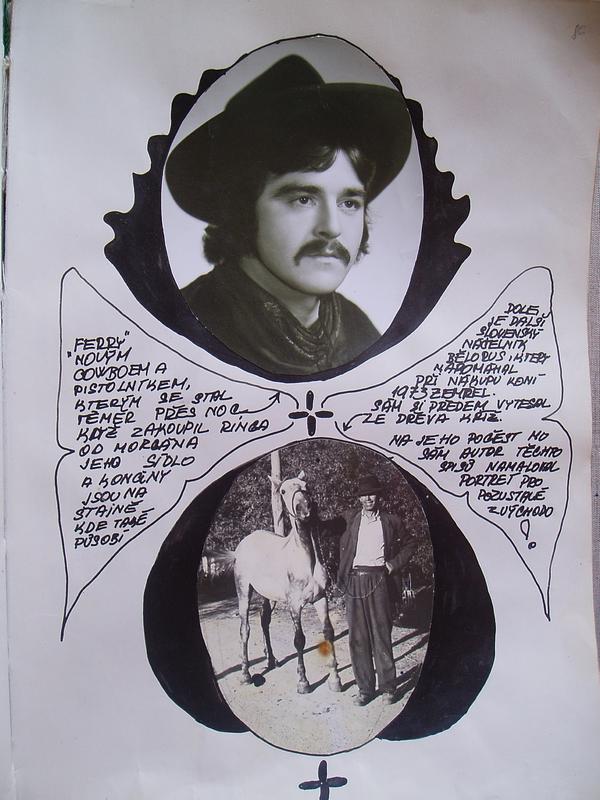 "FERRY"
NOVÝM
COWBOEM A
PISTOLNÍKEM,
KTERÝM SE STAL
TÉMĚŘ PŘES NOC
KDYŽ ZAKOUPIL RINGA
OD MORGANA
JEHO SÍDLO
A KONČINY
JSOU NA
STAJNĚ
KDE TAKÉ
PŮSOBÍ
DOLE
JE DALŠÍ
SLOVENSKÝ
NÁČELNÍK
BĚLORUS, KTERÝ
NAPOMÁHAL
PŘI NÁKUPU KONÍ
1973 ZEMŘEL.
SÁM SI PŘEDEM VYTESAL
ZE DŘEVA KŘÍŽ.
NA JEHO POČEST MU
SÁM AUTOR TĚCHTO
SPISŮ NAMALOVAL
PORTRÉT PRO
POZŮSTALÉ
Z VÝCHODO
!